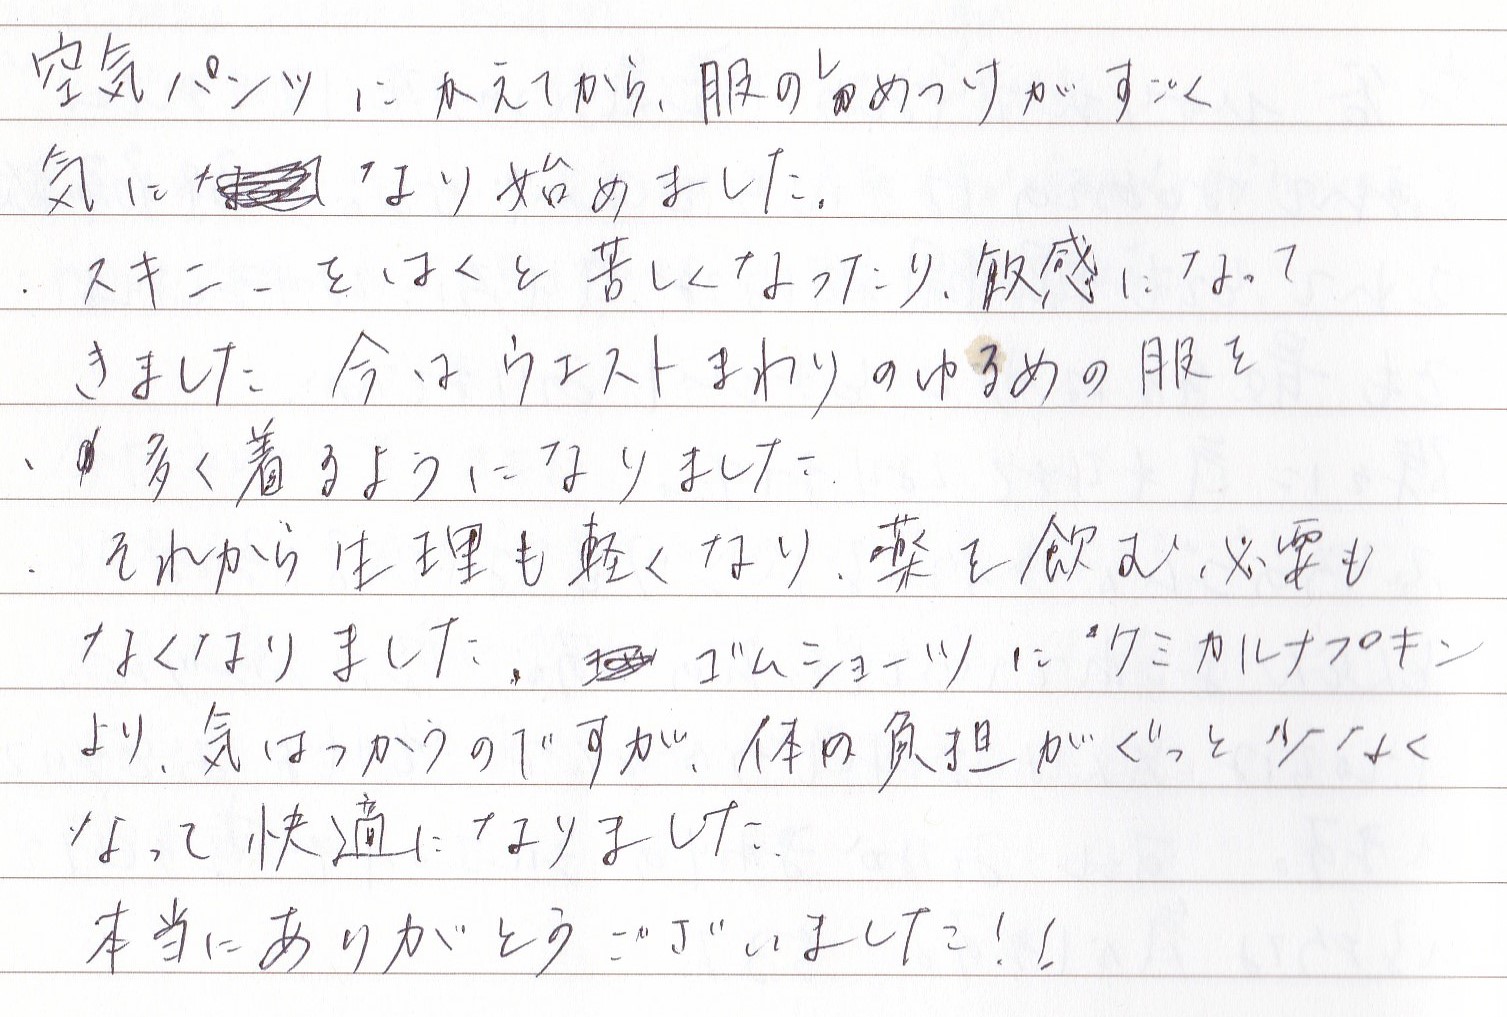 空気パンツにかえてから、服のしめつけがすごく
気になり始めました。
スキニーをはくと苦しくなったり、敏感になって
きました 今はウエストまわりのゆるめの服を
多く着るようになりました
それから生理も軽くなり、薬を飲む必要も
なくなりました。ゴムショーツにケミカルナプキン
より、気はつかうのですが、体の負担がぐっと少なく
なって快適になりました
本当にありがとうございました!!